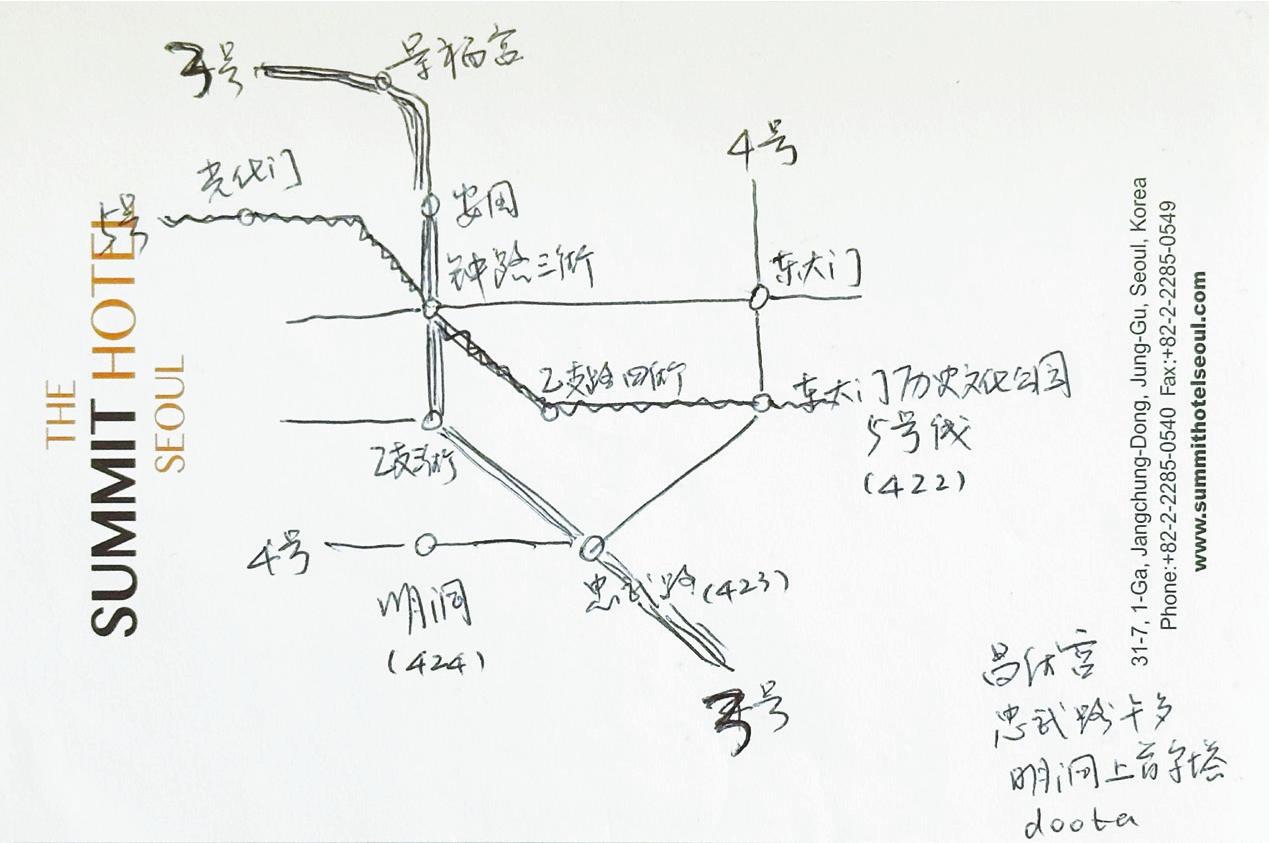 3号
景福宫
4号
光化门
5号
安国
钟路三街
东大门
乙支路四街
东大门历史文化公园
5号线
(422)
乙支
4号
明洞
(424)
忠武路(423)
3号
忠武路卡多
明洞上首字塔
doota
THE
SUMMIT HOTEL
SEOUL
31-7, 1-Ga, Jangchung-Dong, Jung-Gu, Seoul, Korea
Phone:+82-2-2285-0540 Fax:+82-2-2285-0549
www.summithotelseoul.com